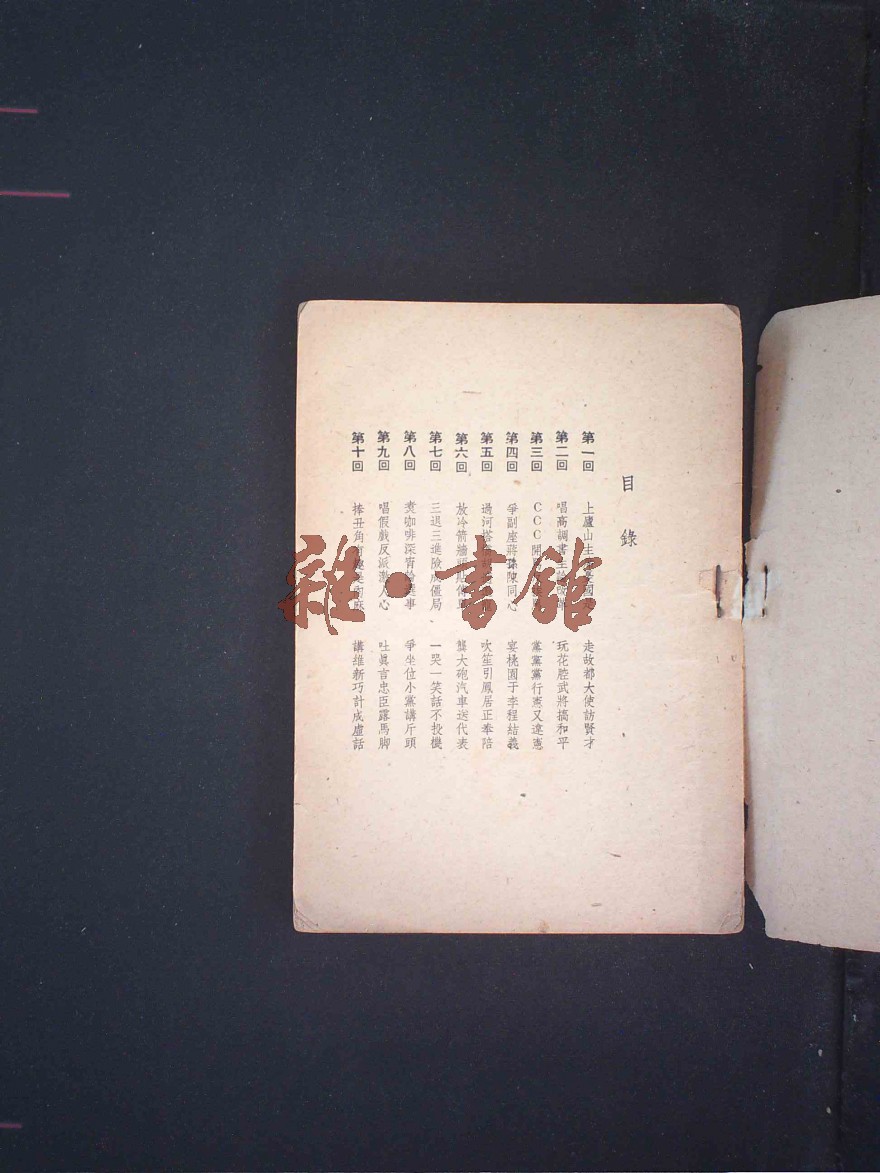 目錄
第一回 上廬山生 走故都大使訪賢才
第二回 唱高調書生論 玩花腔武將搞和平
第三回 CCC開 黨黨黨行憲又違憲
第四回 爭副座蔣孫陳同心 宴桃園于李程結義
第五回 過河 吹笙引鳳居正奉陪
第六回 放冷箭牆 龔大砲汽車送代表
第七回 三退三進險成僵局 一哭一笑話不投機
第八回 煑咖啡深宵論選事 爭坐位小黨講斤頭
第九回 唱假戲反派激人心 吐眞言忠臣露馬脚
第十回 捧丑角 講維新巧計成虛話
雜·書館